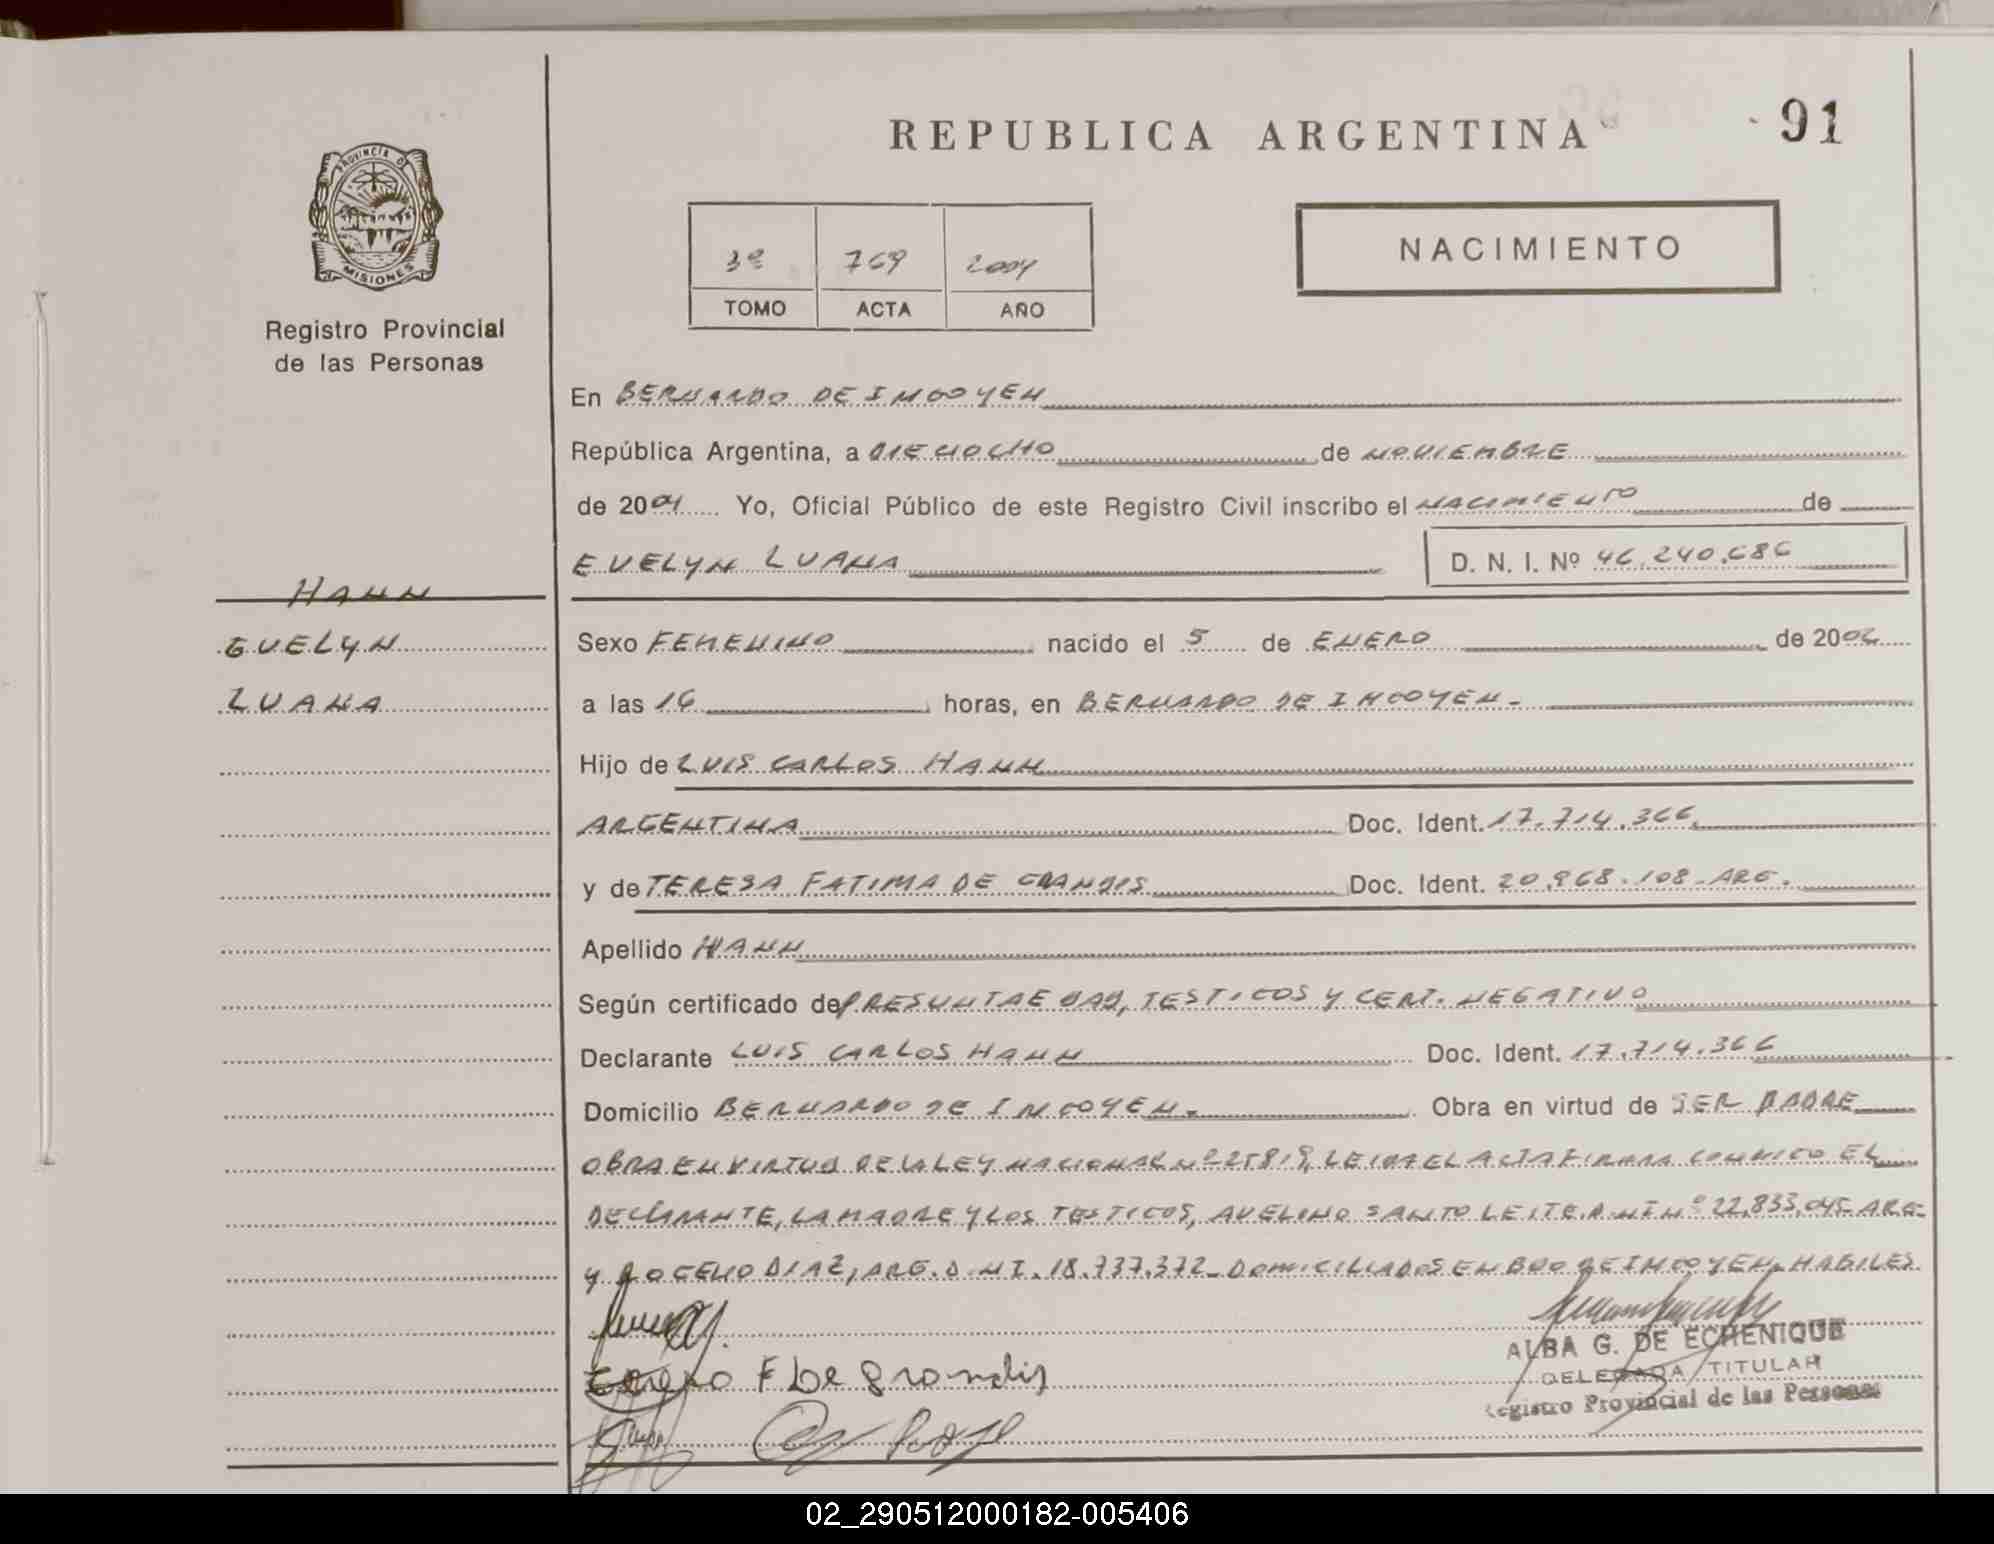 REPUBLICA ARGENTINA
91
PROVINCIA D
MISIONES
Registro Provincial
de las Personas
3º 769 2004
TOMO ACTA AÑO
NACIMIENTO
En BERNARDO DE IRIGOYEN
República Argentina, a DIECIOCHO de NOVIEMBRE
de 2004 Yo, Oficial Público de este Registro Civil inscribo el NACIMIENTO de
EVELYN LUANA
D. N. I. Nº 46.240.686
HANN
EVELYN
LUANA
Sexo FEMENINO nacido el 5 de ENERO de 200
a las 16 horas, en BERNARDO DE IRIGOYEN.
Hijo de LUIS CARLOS HANN
ARGENTINA Doc. Ident. 17.714.366.
y de TERESA FATIMA DE GRANDIS Doc. Ident. 20.968.108-ARG.
Apellido HANN
Según certificado de PRESUNTA EDAD, TESTIGOS Y CERT. NEGATIVO
Declarante LUIS CARLOS HANN Doc. Ident. 17.714.366
Domicilio BERNARDO DE IRIGOYEN. Obra en virtud de SER PADRE
OBRA EN VIRTUD DE LA LEY NACIONAL Nº 25819, LEIDA EL ACTA FIRMAN CONMIGO EL
DECLARANTE, LA MADRE Y LOS TESTIGOS, AVELINO SANTO LEITE D.N.I Nº 22.833.045 ARG-
Y ROGELIO DIAZ, ARG. D.N.I. 18.737.372- DOMICILIADOS EN BDO DE IRIGOYEN-HABILES.
F De grandis
ALBA G. DE ECHENIQUE
DELEGADA TITULAR
Registro Provincial de las Personas
02_290512000182-005406